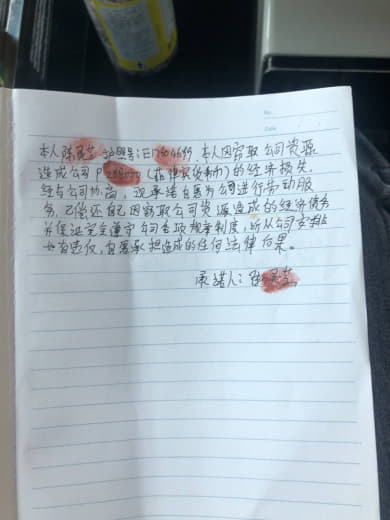 No.
Date
本人陈 护照号:E 本人因窃取公司资源
造成公司P (菲律宾 币)的经济损失,
经与公司协商,现承诺自愿为公司进行劳动服
务,已偿还自己因窃取公司资源造成的经济债务
并保证完全遵守公司各项规章制度,听从公司安排
如有违反,自愿承担造成的任何法律后果。
承诺人:陈